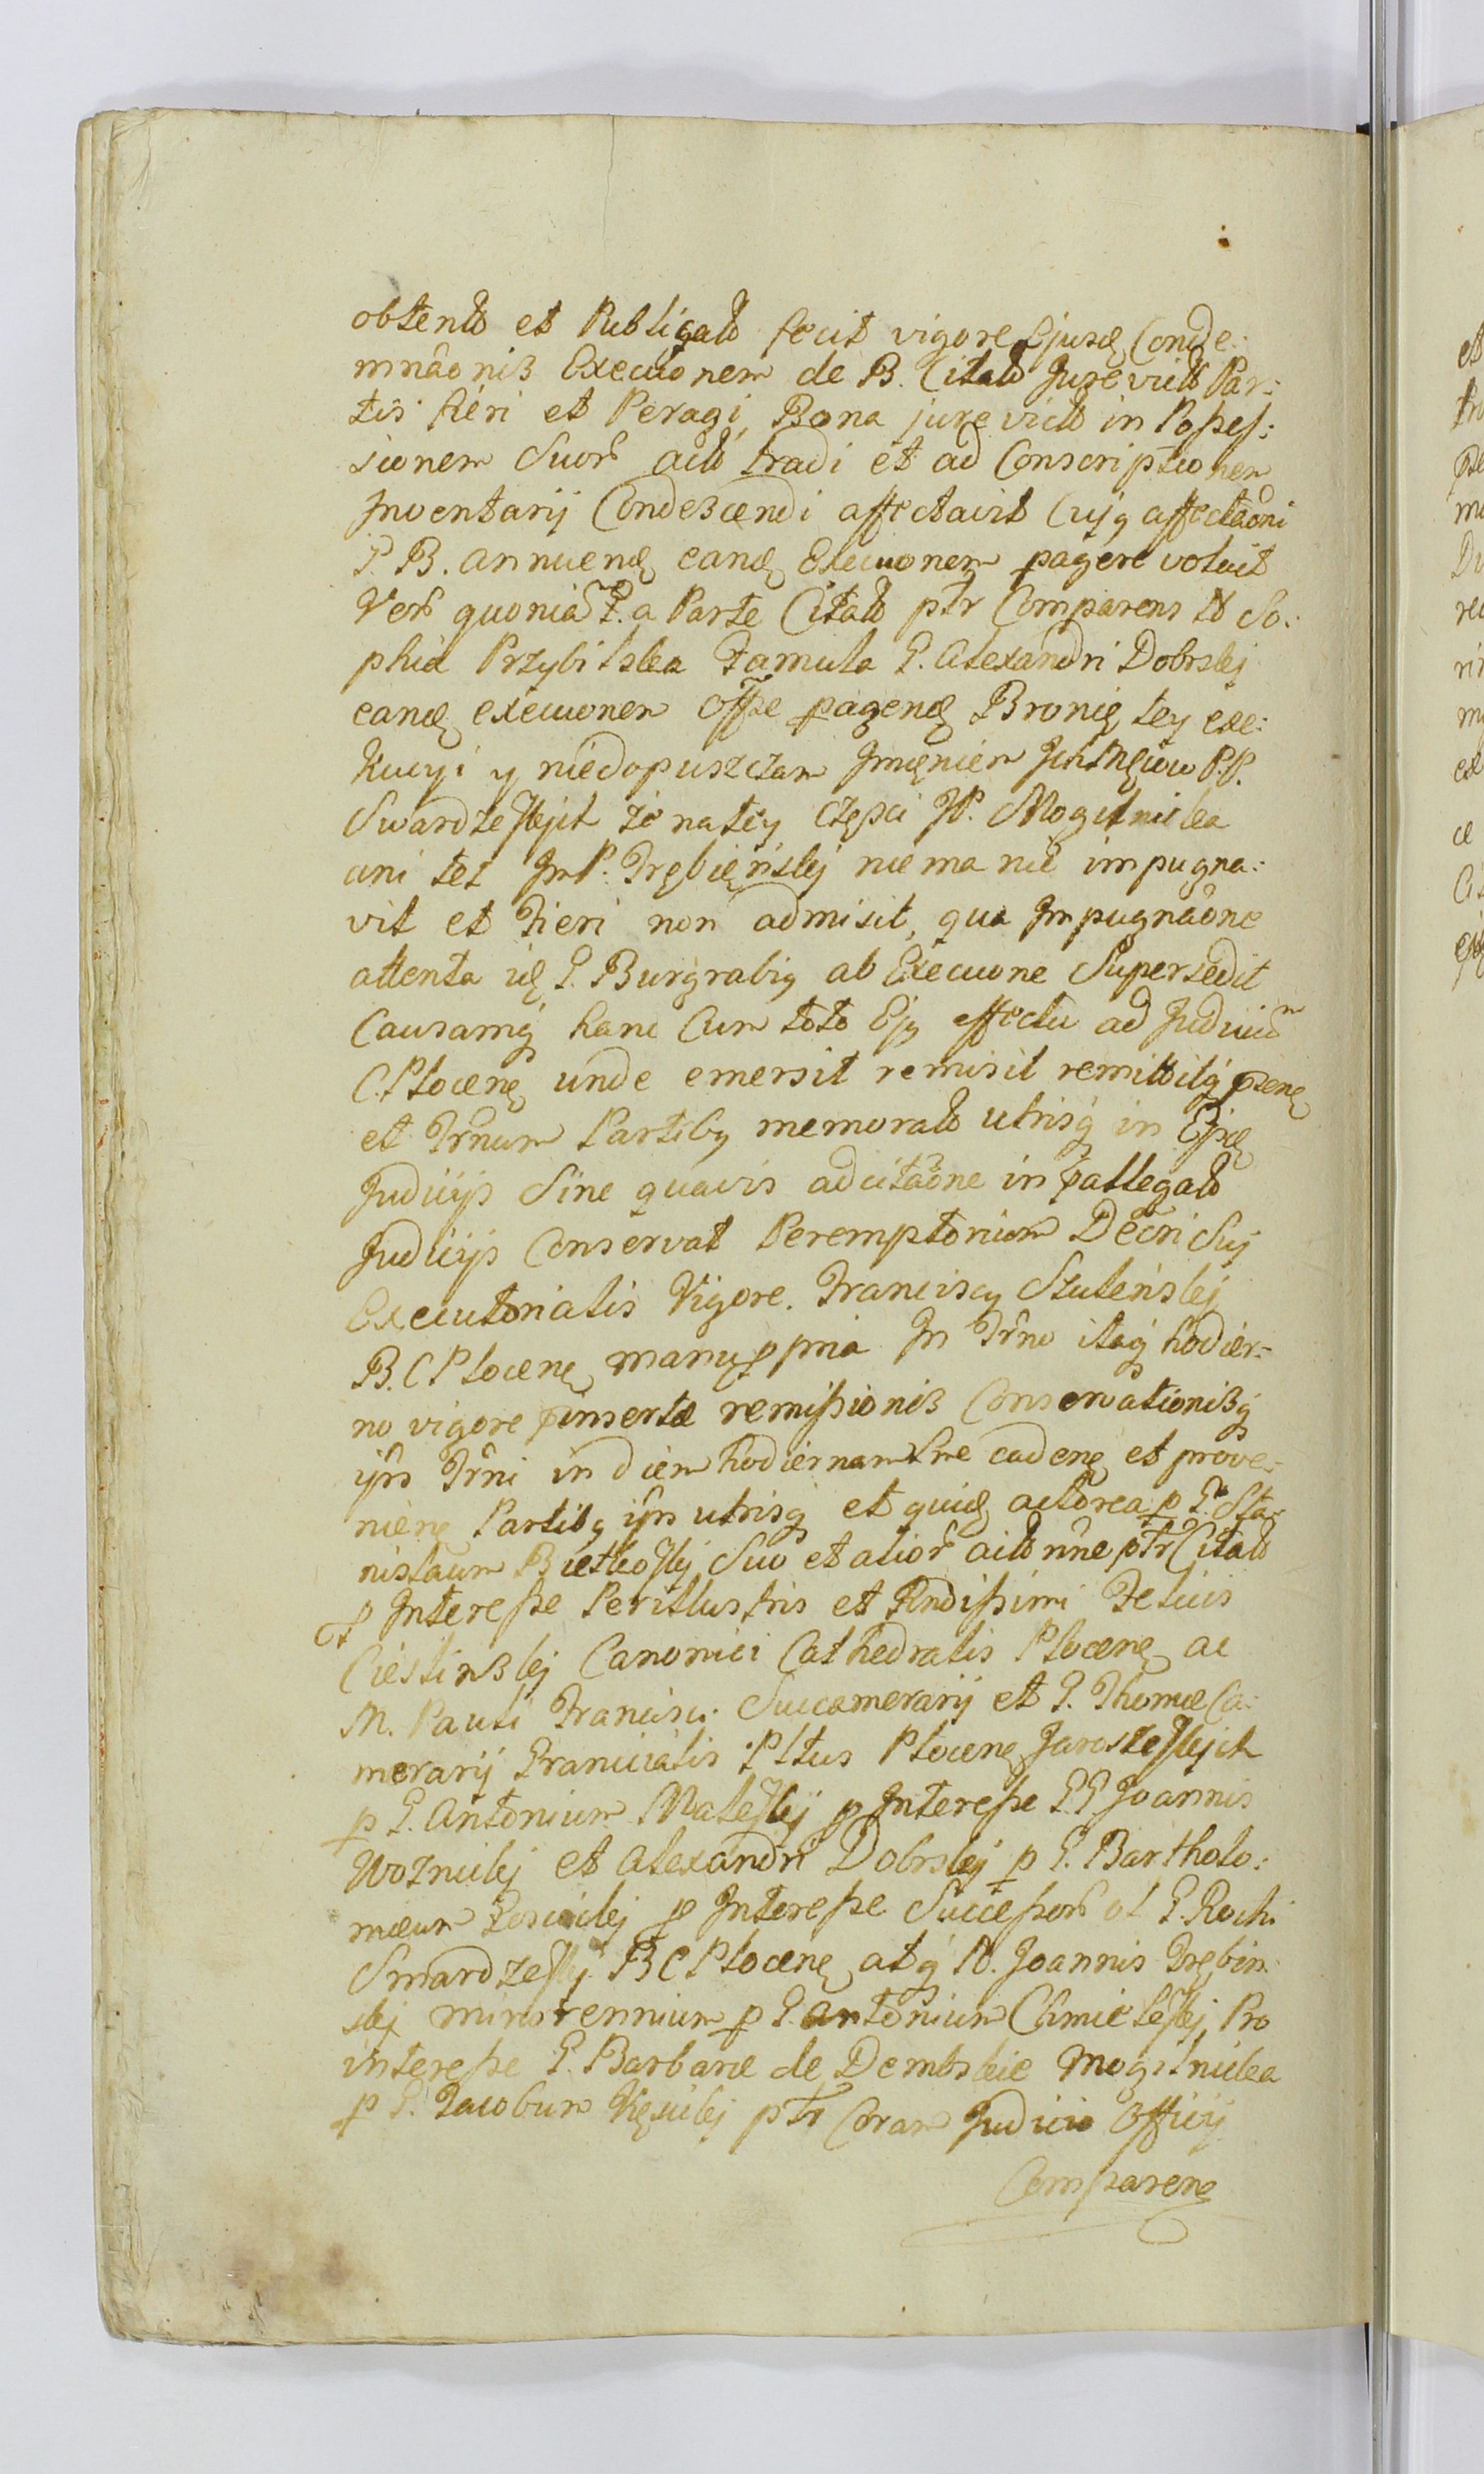 obtento et Publigato fecit vigore Ejusd Conde:
mnâonis Execuonem de B. Citato Jure victo Par:
tis fieri et Peragi, Bona jure victo in Possess:
sionem Suor acto tradi et ad Conscriptionem
Inventarij Condescendi affectavit Cujq affectâoni
G. B. annuend eand Execuonem pagere voluit
Vero quoniã G. a Parte Citato ptr Comparens N So:
phia Przybilska Famula G. Alexandri Dobrskj
eand execuonem Offse pagend Bronię tey exe:
kucyi y niedopuszczam Imęniem Ichmęiow P.P.
Swardzeskjch że na tey częsci JP. Mogilnicka
ani też JmP. Trębięńskj nie ma nic impugna:
vit et Fieri non admisit, qua Impugnâone
attenta id G. Burgrabiq ab Execuone Supersedit
Causamq hanc Cum toto Ejq effectu ad Judiciũm
C. Plocenę unde emersit remisit remittitq psenę
et Trnum Partibq memorato utrisq in Ejsd
Judicijs Sine quavis adcitâone in pallegato
Judicijs Conservat Peremptorium Decri Suj
Executorialis Vigore. Franciscq Szuleńskj
B. C Plocenę manuppria In Trno itaq hodier:
no vigore pinsertæ remissionis Conservationisq
ijrs Trni in diem hodiernam Sme cadenę et prove:
nienę Partibq ijrs utrisq et quid actorea p G. Sta:
nislaum Bietkoskj Suo et alior acto nne ptr Citato
p Interesse Perillustris et Rndissimi Felicis
Ciestinskj Canonici Cathedralis Plocenę ac
M. Pauli Francisci Succamerarij et G. Thomæ Ca:
merarij Granicialis Pltus Plocenę Jaroszeskjch
p G. Antonium Maleskj p Interesse G.G Joannis
Woznickj et Alexandri Dobrskj p G. Bartholo:
mæum Łosickj p Interesse Successor ol G. Rochi
Smardzeskj B C Plocenę atq N. Joannis Trębin:
skj minorennium p G. Antonium Chmieleskj, Pro
interesse G. Barbaræ de Dembskie Mogilnicka
p G. Jacobum Kęsickj ptr Coram Judicio Officij
Comparenę